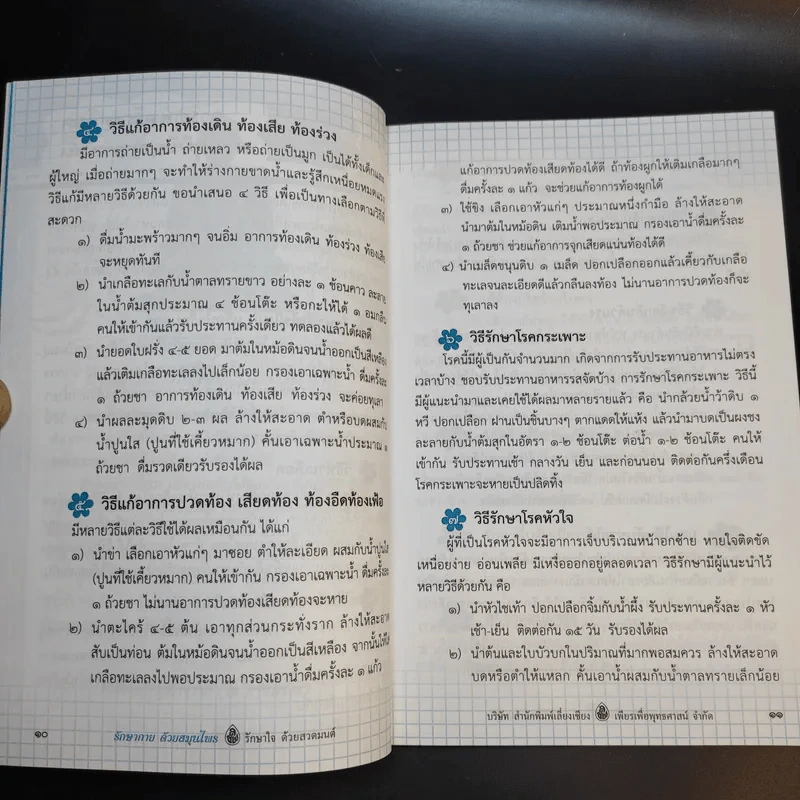 ๔ วิธีแก้อาการท้องเดิน ท้องเสีย ท้องร่วง
มีอาการถ่ายเป็นน้ำ ถ่ายเหลว หรือถ่ายเป็นมูก เป็นได้ทั้งเด็กและ
ผู้ใหญ่ เมื่อถ่ายมากๆ จะทำให้ร่างกายขาดน้ำและรู้สึกเหนื่อยหมดแรง
วิธีแก้มีหลายวิธีด้วยกัน ขอนำเสนอ ๔ วิธี เพื่อเป็นทางเลือกตามวิธีที่
สะดวก
๑) ดื่มน้ำมะพร้าวมากๆ จนอิ่ม อาการท้องเดิน ท้องร่วง ท้องเสีย
จะหยุดทันที
๒) นำเกลือทะเลกับน้ำตาลทรายขาว อย่างละ ๑ ช้อนคาว ละลาย
ในน้ำต้มสุกประมาณ ๔ ช้อนโต๊ะ หรือกะให้ได้ ๑ อมกลืน
คนให้เข้ากันแล้วรับประทานครั้งเดียว ทดลองแล้วได้ผลดี
๓) นำยอดใบฝรั่ง ๔-๕ ยอด มาต้มในหม้อดินจนน้ำออกเป็นสีเหลือง
แล้วเติมเกลือทะเลลงไปเล็กน้อย กรองเอาเฉพาะน้ำ ดื่มครั้งละ
๑ ถ้วยชา อาการท้องเดิน ท้องเสีย ท้องร่วง จะค่อยทุเลา
๔) นำผลละมุดดิบ ๒-๓ ผล ล้างให้สะอาด ตำหรือบดผสมกับ
น้ำปูนใส (ปูนที่ใช้เคี้ยวหมาก) คั้นเอาเฉพาะน้ำประมาณ ๑
ถ้วยชา ดื่มรวดเดียวรับรองได้ผล
๕ วิธีแก้อาการปวดท้อง เสียดท้อง ท้องอืดท้องเฟ้อ
มีหลายวิธีแต่ละวิธีใช้ได้ผลเหมือนกัน ได้แก่
๑) นำข่า เลือกเอาหัวแก่ๆ มาซอย ตำให้ละเอียด ผสมกับน้ำปูนใส
(ปูนที่ใช้เคี้ยวหมาก) คนให้เข้ากัน กรองเอาเฉพาะน้ำ ดื่มครั้งละ
๑ ถ้วยชา ไม่นานอาการปวดท้องเสียดท้องจะหาย
๒) นำตะไคร้ ๔-๕ ต้น เอาทุกส่วนกระทั่งราก ล้างให้สะอาด
สับเป็นท่อน ต้มในหม้อดินจนน้ำออกเป็นสีเหลือง จากนั้นให้ใส่
เกลือทะเลลงไปพอประมาณ กรองเอาน้ำดื่มครั้งละ ๑ แก้ว
๑๐ รักษากาย ด้วยสมุนไพร รักษาใจ ด้วยสวดมนต์
แก้อาการปวดท้องเสียดท้องได้ดี ถ้าท้องผูกให้เติมเกลือมากๆ
ดื่มครั้งละ ๑ แก้ว จะช่วยแก้อาการท้องผูกได้
๓) ใช้ขิง เลือกเอาหัวแก่ๆ ประมาณหนึ่งกำมือ ล้างให้สะอาด
นำมาต้มในหม้อดิน เติมน้ำพอประมาณ กรองเอาน้ำดื่มครั้งละ
๑ ถ้วยชา ช่วยแก้อาการจุกเสียดแน่นท้องได้ดี
๔) นำเมล็ดขนุนดิบ ๑ เมล็ด ปอกเปลือกออกแล้วเคี้ยวกับเกลือ
ทะเลจนละเอียดดีแล้วกลืนลงท้อง ไม่นานอาการปวดท้องก็จะ
ทุเลาลง
๖ วิธีรักษาโรคกระเพาะ
โรคนี้มีผู้เป็นกันจำนวนมาก เกิดจากการรับประทานอาหารไม่ตรง
เวลาบ้าง ชอบรับประทานอาหารรสจัดบ้าง การรักษาโรคกระเพาะ วิธีนี้
มีผู้แนะนำมาและเคยใช้ได้ผลมาหลายรายแล้ว คือ นำกล้วยน้ำว้าดิบ ๑
หวี ปอกเปลือก ฝานเป็นชิ้นบางๆ ตากแดดให้แห้ง แล้วนำมาบดเป็นผงชง
ละลายกับน้ำต้มสุกในอัตรา ๑-๒ ช้อนโต๊ะ ต่อน้ำ ๑-๒ ช้อนโต๊ะ คนให้
เข้ากัน รับประทานเช้า กลางวัน เย็น และก่อนนอน ติดต่อกันครึ่งเดือน
โรคกระเพาะจะหายเป็นปลิดทิ้ง
๗ วิธีรักษาโรคหัวใจ
ผู้ที่เป็นโรคหัวใจจะมีอาการเจ็บบริเวณหน้าอกซ้าย หายใจติดขัด
เหนื่อยง่าย อ่อนเพลีย มีเหงื่อออกอยู่ตลอดเวลา วิธีรักษามีผู้แนะนำไว้
หลายวิธีด้วยกัน คือ
๑) นำหัวไชเท้า ปอกเปลือกจิ้มกับน้ำผึ้ง รับประทานครั้งละ ๑ หัว
เช้า-เย็น ติดต่อกัน ๑๕ วัน รับรองได้ผล
๒) นำต้นและใบบัวบกในปริมาณที่มากพอสมควร ล้างให้สะอาด
บดหรือตำให้แหลก คั้นเอาน้ำผสมกับน้ำตาลทรายเล็กน้อย
บริษัท สำนักพิมพ์เลี่ยงเชียง เพียรเพื่อพุทธศาสน์ จำกัด ๑๑